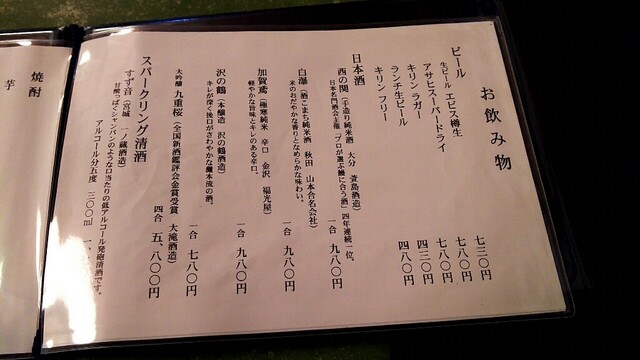 お飲み物
ビール
生ビール ヱビス樽生 七三〇円
アサヒスーパードライ 七八〇円
キリン ラガー 七八〇円
ランチ生ビール 四三〇円
キリン フリー 四八〇円
日本酒
西の関(手造り純米酒 大分 萱島酒造) 一合 九八〇円
日本名門酒会主催「プロが選ぶ鰻に合う酒」四年連続一位。
白瀑(酒こまち純米酒 秋田 山本合名会社) 一合 九八〇円
米のおだやかな香りとなめらかな味わい。
加賀鳶(極寒純米 辛口 金沢 福光屋) 一合 九八〇円
軽やかな旨味とキレのある辛口。
沢の鶴(本醸造 沢の鶴酒造) 一合 七八〇円
キレが深く後口がさわやかな灘本流の酒。
大吟醸 九重桜(全国新酒鑑評会金賞受賞 大滝酒造) 四合 五、八〇〇円
スパークリング清酒
すず音(宮城 一ノ蔵酒造)
甘酸っぱくシャンパンのような口当たりの低アルコール発砲清酒です。
アルコール分五度 三〇〇ml 一、
焼酎
芋